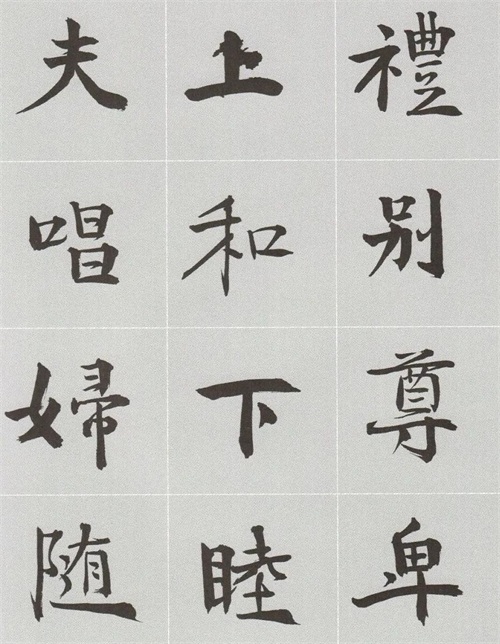 禮别尊卑
上和下睦
夫唱婦随